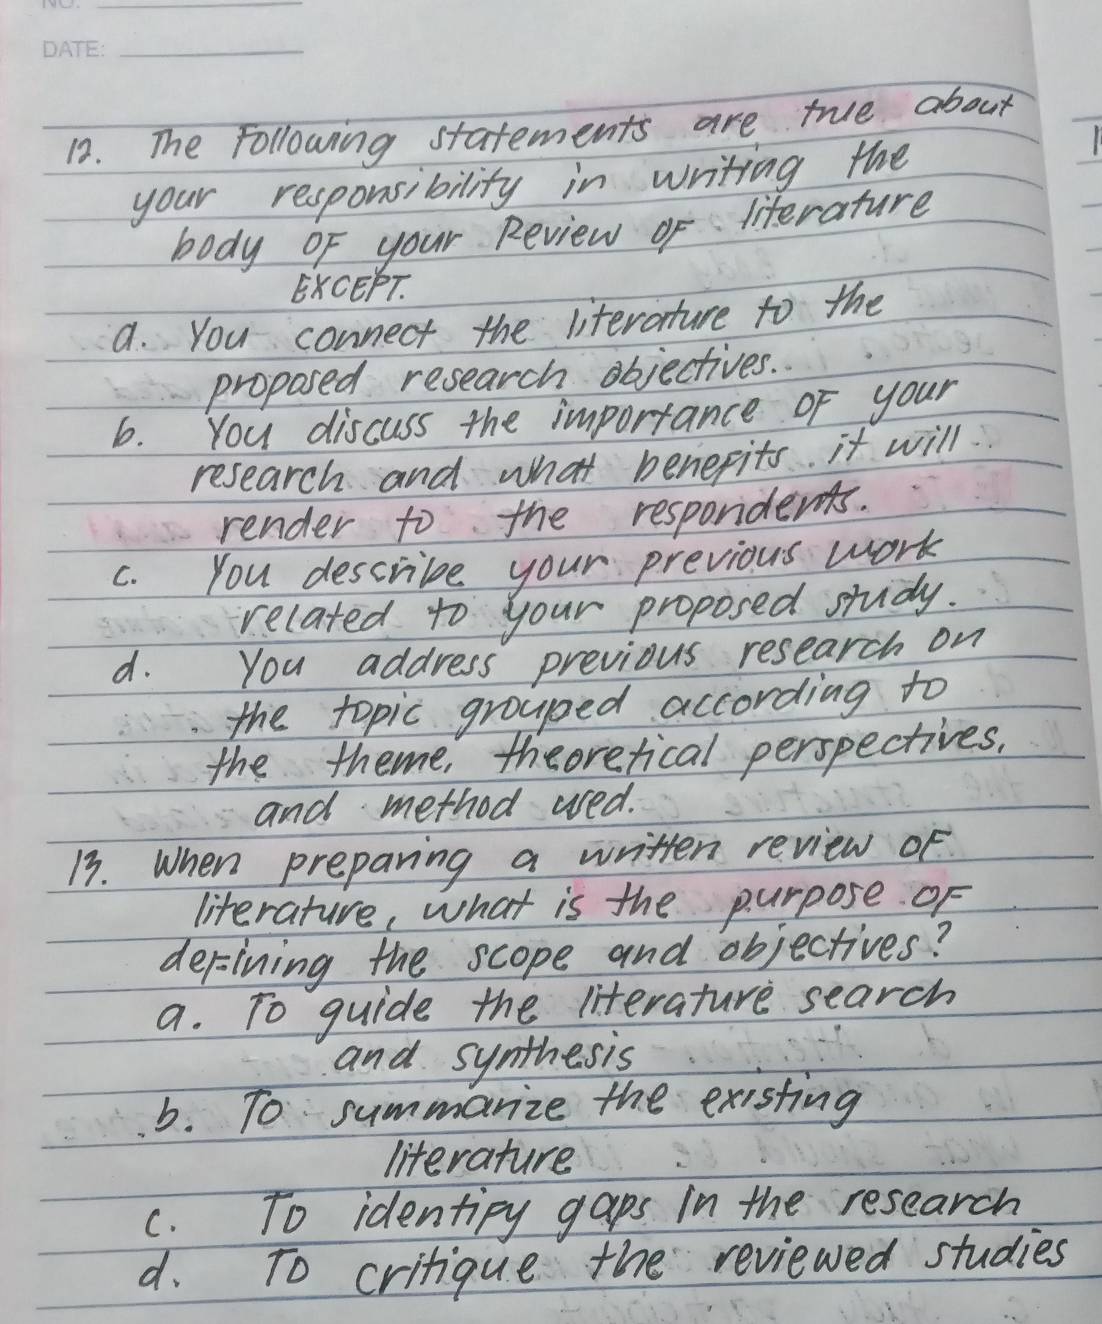 NO.
DATE:
12. The Following statements are true about
your responsibility in writing the
body OF your Review OF literature
EXCEPT.
a. You connect the literature to the
proposed research objectives.
b. You discuss the importance OF your
research and what benefits it will
render to the respondents.
c. You describe your previous work
related to your proposed study.
d. You address previous research on
the topic grouped according to
the theme, theoretical perspectives,
and method used.
13. When preparing a written review OF
literature, what is the purpose OF
defining the scope and objectives?
a. To guide the literature search
and synthesis
b. To summarize the existing
literature
c. To identify gaps in the research
d. To critique the reviewed studies